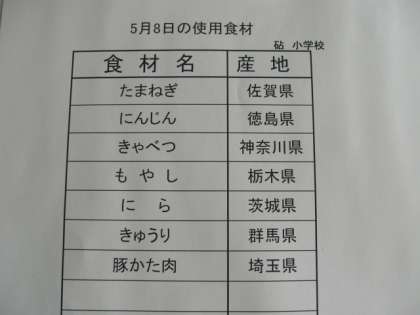 5月8日の使用食材
砧 小学校
食材名 産地
たまねぎ 佐賀県
にんじん 徳島県
きゃべつ 神奈川県
もやし 栃木県
にら 茨城県
きゅうり 群馬県
豚かた肉 埼玉県